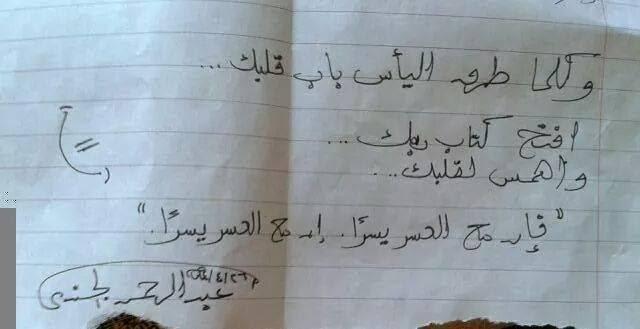 وكلما طرق اليأس باب قلبك ...
افتح كتاب ربك ...
واهمس لقلبك ...
"فإن مع العسر يسرًا. إن مع العسر يسرًا."
عبد الرحمن